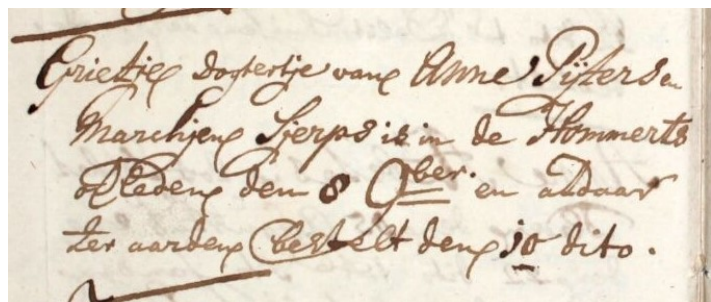 Grietie dogtertje van Anne Pijters en
Marchjen Sjerps is in de Hommerts
overleden den 8 9ber. en aldaar
ter aarden bestelt den 10 dito.